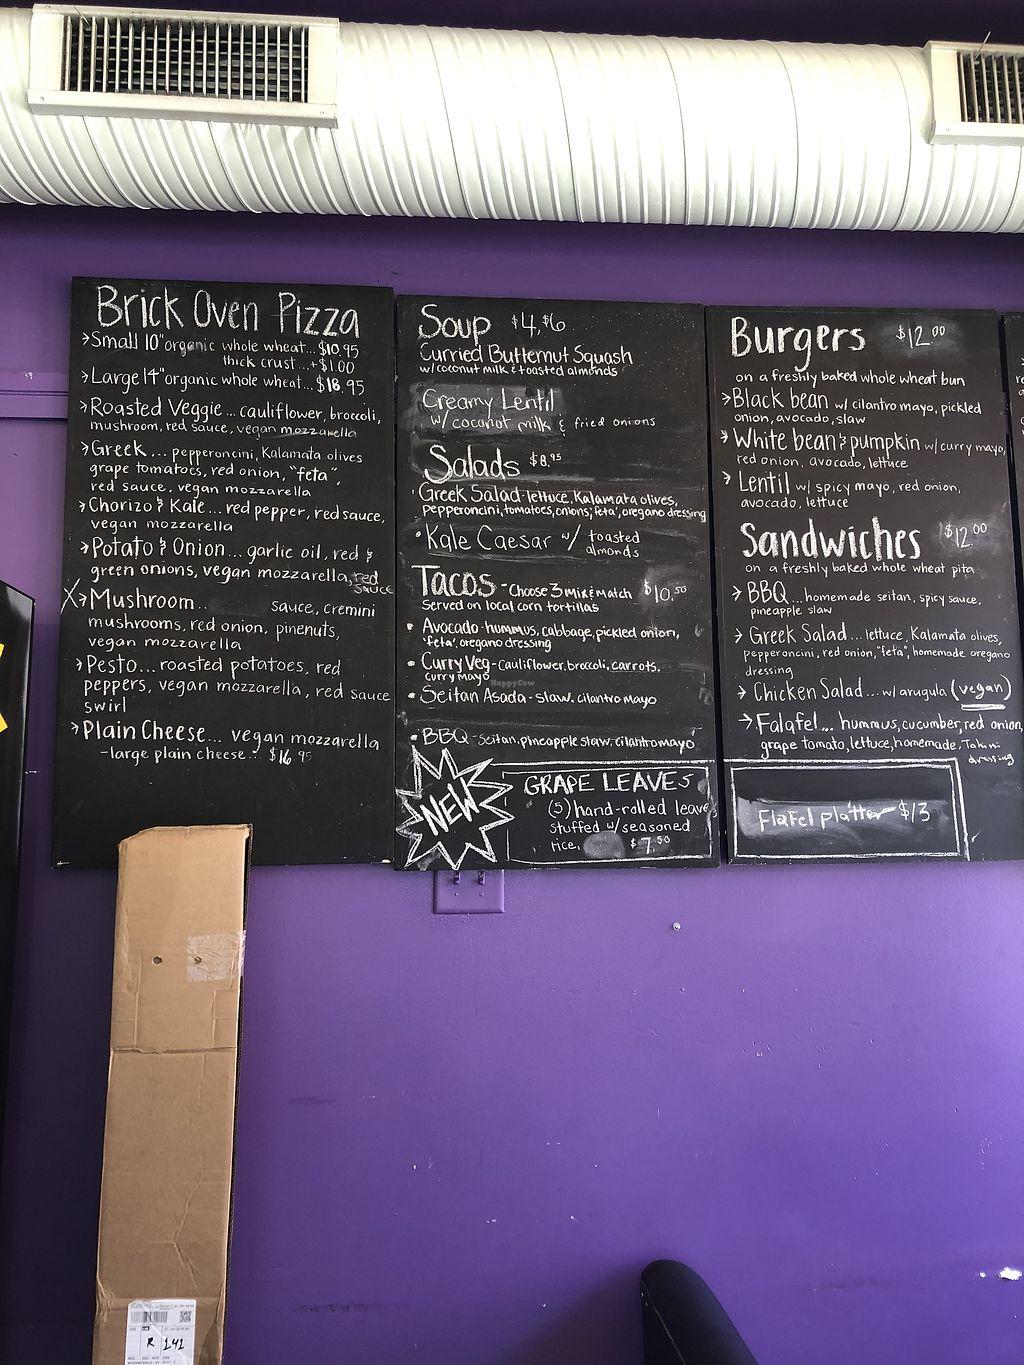 Brick Oven Pizza
Small 10" organic whole wheat... $10.95
thick crust...+$1.00
Large 14" organic whole wheat... $18.95
Roasted Veggie... cauliflower, broccoli,
mushroom, red sauce, vegan mozzarella
Greek... pepperoncini, Kalamata olives
grape tomatoes, red onion, "feta",
red sauce, vegan mozzarella
Chorizo & Kale... red pepper, red sauce,
vegan mozzarella
Potato & Onion... garlic oil, red &
green onions, vegan mozzarella, red
sauce
X Mushroom.. sauce, cremini
mushrooms, red onion, pinenuts,
vegan mozzarella
Pesto... roasted potatoes, red
peppers, vegan mozzarella, red sauce
swirl
Plain Cheese... vegan mozzarella
-large plain cheese... $16.95
Soup $4, $6
Curried Butternut Squash
w/coconut milk & toasted almonds
Creamy Lentil
w/ coconut milk & fried onions
Salads $8.95
Greek Salad-lettuce, Kalamata olives,
pepperoncini, tomatoes, onions, 'feta', oregano dressing
Kale Caesar w/ toasted
almonds
Tacos - Choose 3 mix & match $10.50
Served on local corn tortillas
Avocado-hummus, cabbage, pickled onion,
'feta', oregano dressing
Curry Veg-cauliflower, broccoli, carrots,
curry mayo
HappyCow
Seitan Asada - slaw, cilantro mayo
BBQ-seitan, pineapple slaw, cilantro mayo
NEW
GRAPE LEAVES
(5) hand-rolled leaves
stuffed w/seasoned
rice. $7.50
Burgers $12.00
on a freshly baked whole wheat bun
Black bean w/ cilantro mayo, pickled
onion, avocado, slaw
White bean & pumpkin w/curry mayo,
red onion, avocado, lettuce
Lentil w/ spicy mayo, red onion,
avocado, lettuce
Sandwiches $12.00
on a freshly baked whole wheat pita
BBQ... homemade seitan, spicy sauce,
pineapple slaw
Greek Salad... lettuce, Kalamata olives,
pepperoncini, red onion, "feta", homemade oregano
dressing
Chicken Salad... w/ arugula (vegan)
Falafel... hummus, cucumber, red onion,
grape tomato, lettuce, homemade, Tahini
dressing
Flafel platter $13
R 141